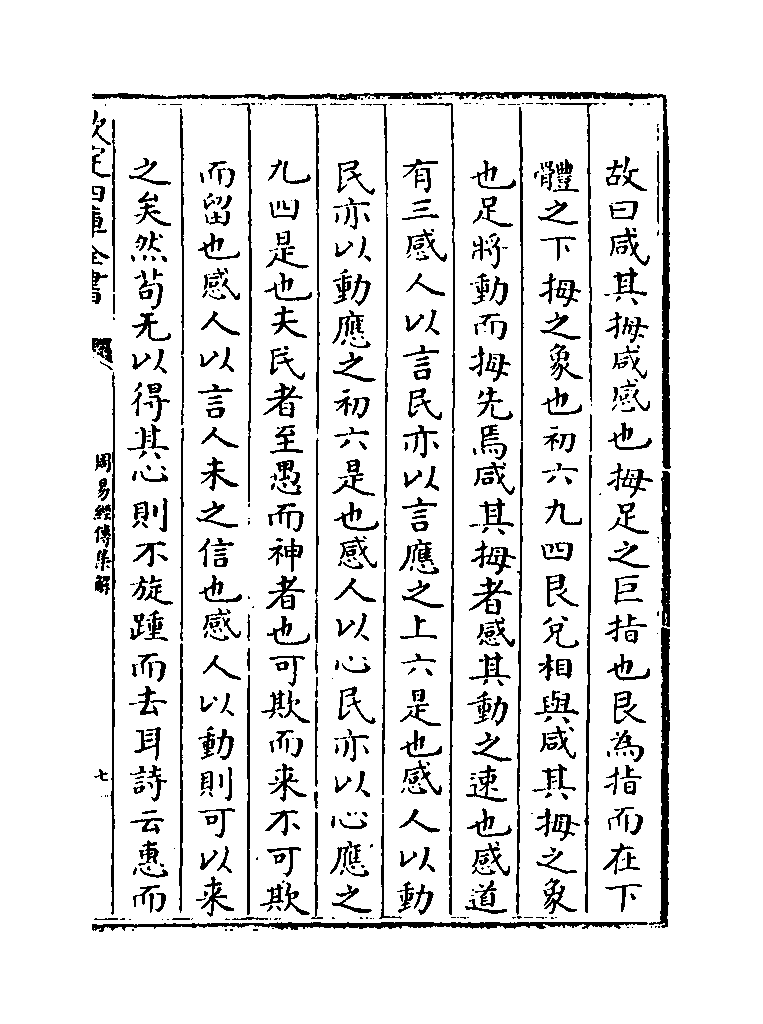 故曰咸其拇咸感也拇足之巨指也艮為指而在下
體之下拇之象也初六九四艮兌相與咸其拇之象
也足將動而拇先焉咸其拇者感其動之速也感道
有三感人以言民亦以言應之上六是也感人以動
民亦以動應之初六是也感人以心民亦以心應之
九四是也夫民者至愚而神者也可欺而来不可欺
而留也感人以言人未之信也感人以動則可以来
之矣然苟无以得其心則不旋踵而去耳詩云惠而
欽定四庫全書
周易經傳集解
七